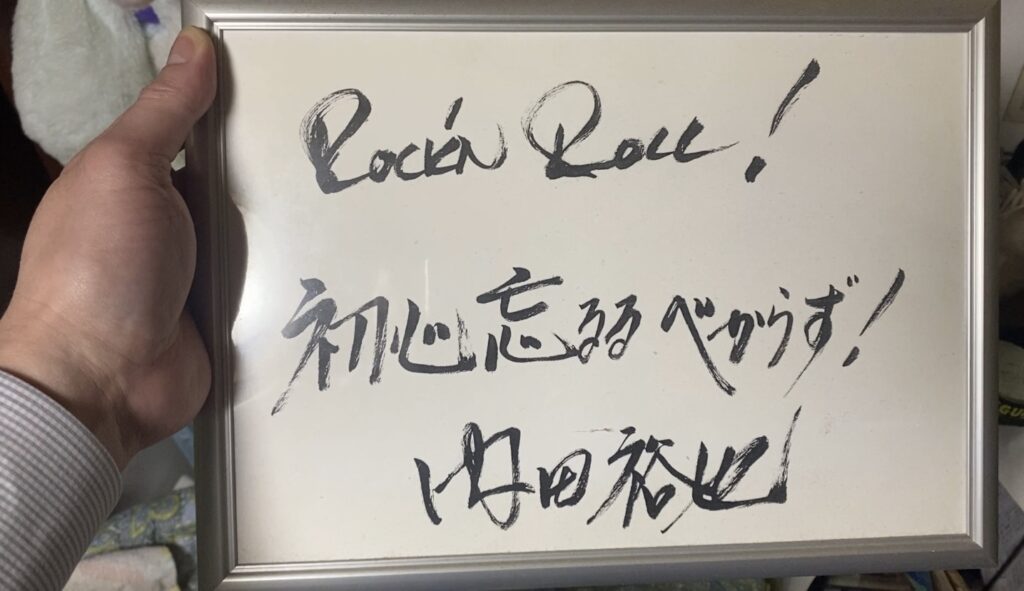 Rock'n Roll!
初心忘るるべからず!
内田裕也